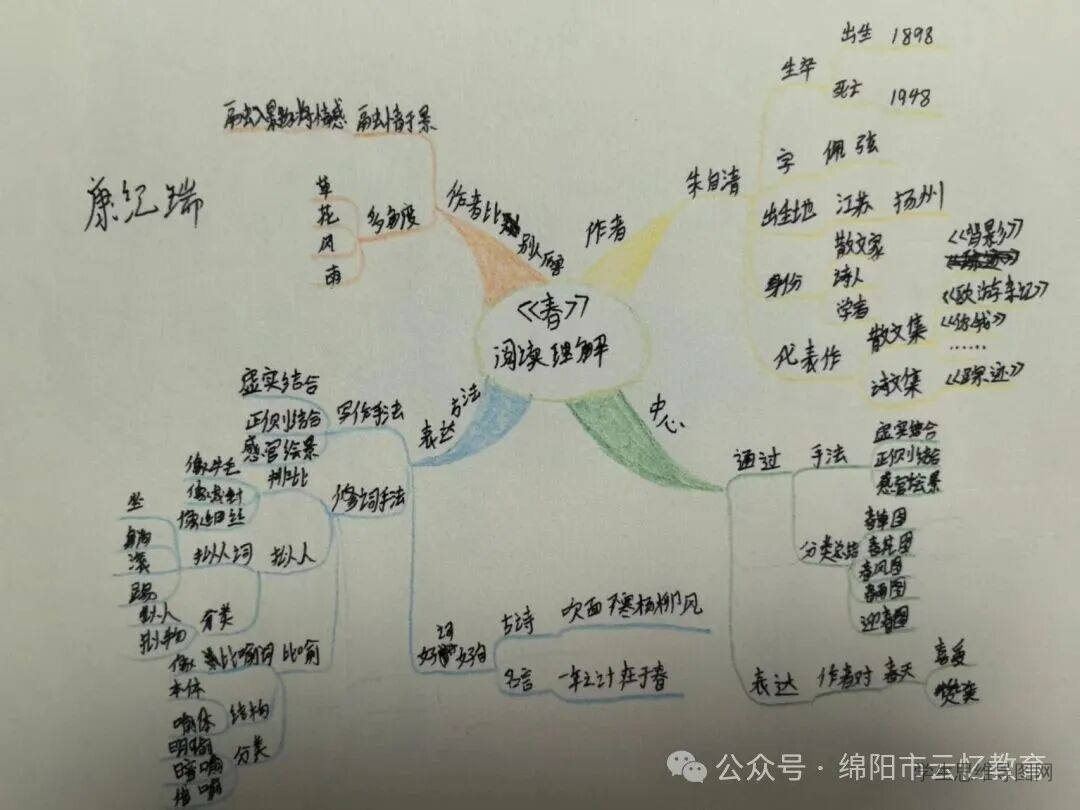 康纪瑞
《春》
阅读理解
作者
朱自清
生卒
出生 1898
死亡 1948
字 佩弦
出生地 江苏 扬州
身份
散文家
诗人
学者
代表作
散文集
《背影》
《欧游杂记》
《你我》
……
诗文集 《踪迹》
中心
通过
手法
虚实结合
正侧结合
感官绘景
分类总结
春草图
春花图
春风图
春雨图
迎春图
表达 作者对 春天
喜爱
赞美
表达方法
写作手法
虚实结合
正侧结合
感官绘景
修词手法
排比
像牛毛
像花针
像细丝
拟人
拟人词
坐
躺
滚
踢
分类
拟人
拟物
比喻
比喻词
像
结构
本体
喻体
分类
明喻
暗喻
借喻
好词好句
古诗 吹面不寒杨柳风
名言 一年之计在于春
作者比别人厉害
融情于景
融入景物将情感
多角度
草
花
风
雨
公众号·绵阳市云忆教育
学生思维导图网